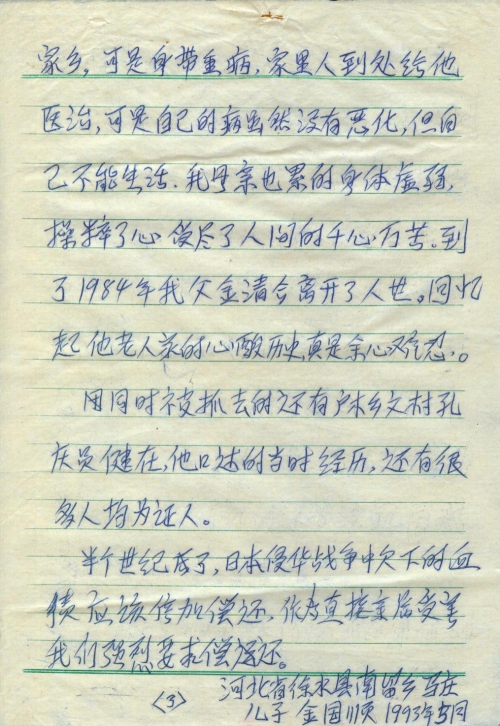 家乡，可是身带重病，家里人到处给他
医治，可是自己的病虽然没有恶化，但自
己不能生活．我母亲也累的身体虚弱，
操粹了心 受尽了人间的千心万苦。到
了1984年我父金清合离开了人世。回忆
起他老人家的心酸历史，真是余心难忍。
用同时被抓去的还有户木乡文村孔
庆员健在，他口述的当时经历，还有很
多人均为证人。
半个世纪底了，日本侵华战争中欠下的血
债应该倍加偿还，作为直接亲属受害
我们强烈要求偿还。
河北省徐水县南留乡 庄
儿子 金国顺 1993年 月
〈3〉